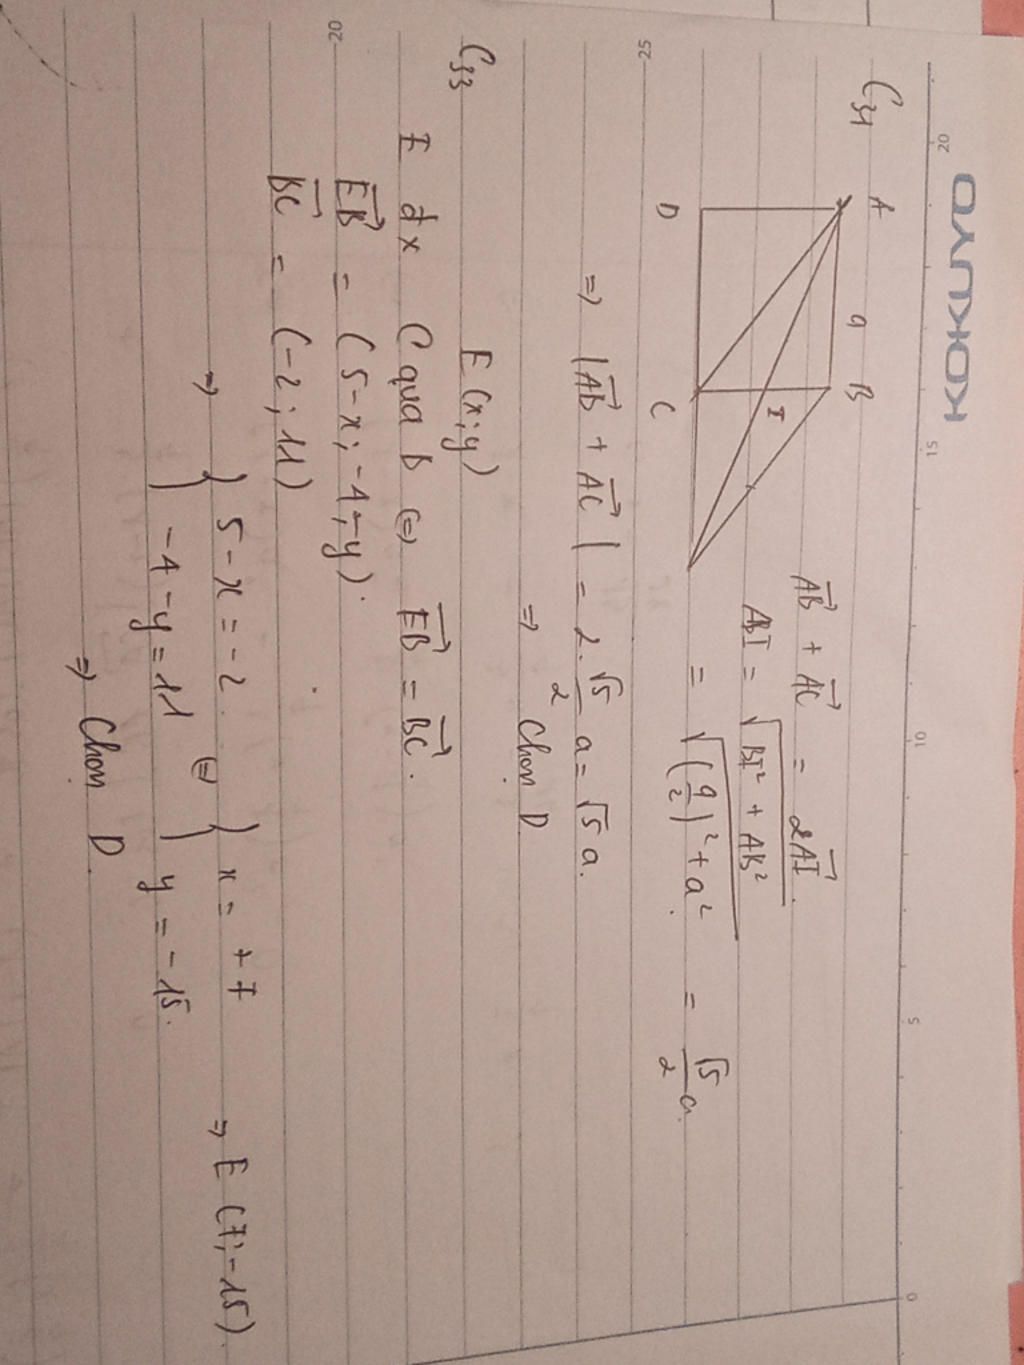 KOKUYO
20 15 10 5 0
C31
A a B
I
D C
AB→ + AC→ = 2AI→.
ABI = √(BI² + AB²)
= √((a/2)² + a²) = √5/2 a.
25
⇒ |AB→ + AC→| = 2.√5/2 a = √5 a.
⇒ Chọn D
C33 E(x;y)
E đx C qua B ⇔ EB→ = BC→.
20
EB→ = (5-x; -4-y).
BC→ = (-2; 11)
⇒ { 5-x = -2. ⇔ { x = +7 ⇒ E(7;-15).
{ -4-y = 11 { y = -15.
⇒ Chọn D.